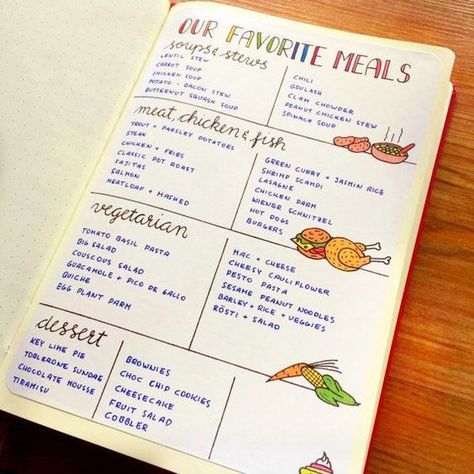 OUR FAVORITE MEALS
soups & stews
LENTIL STEW
CARROT SOUP
CHICKEN SOUP
POTATO - BACON STEW
BUTTERNUT SQUASH SOUP
CHILI
GOULASH
CLAM CHOWDER
PEANUT CHICKEN STEW
SPINACH SOUP
meat, chicken & fish
TROUT + PARSLEY POTATOES
STEAK
CHICKEN + FRIES
CLASSIC POT ROAST
FAJITAS
SALMON
MEATLOAF + MASHED
GREEN CURRY + JASMIN RICE
SHRIMP SCAMPI
LASAGNE
CHICKEN PARM
WIENER SCHNITZEL
HOT DOGS
BURGERS
vegetarian
TOMATO BASIL PASTA
BIG SALAD
COUSCOUS SALAD
GUACAMOLE + PICO DE GALLO
QUICHE
EGG PLANT PARM
MAC + CHEESE
CHEESY CAULIFLOWER
PESTO PASTA
SESAME PEANUT NOODLES
BARLEY + RICE + VEGGIES
RÖSTI + SALAD
dessert
KEY LIME PIE
TOBLERONE SUNDAE
CHOCOLATE MOUSSE
TIRAMISU
BROWNIES
CHOC CHIP COOKIES
CHEESECAKE
FRUIT SALAD
COBBLER